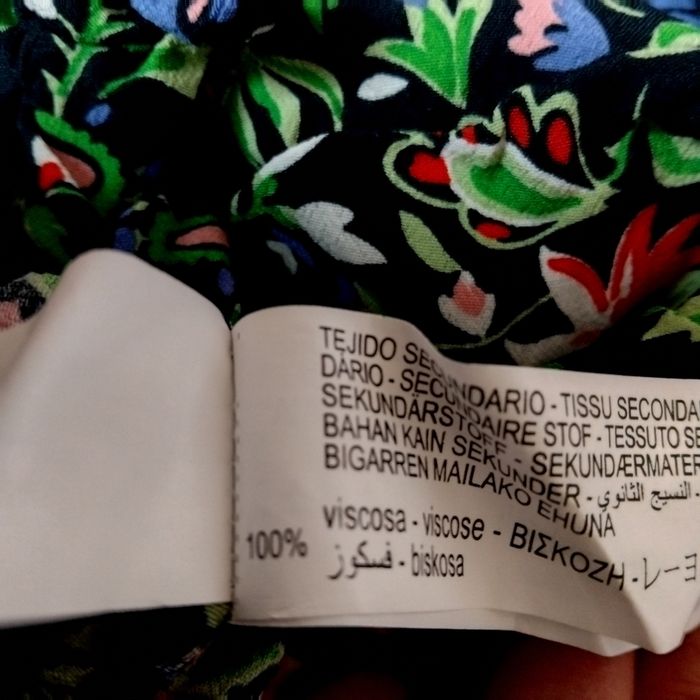 TEJIDO SECUNDARIO - TISSU SECONDA
DÁRIO - SECUNDAIRE STOF - TESSUTO SE
SEKUNDÄRSTOFF - SEKUNDÆRMATER
BAHAN KAIN SEKUNDER - النسيج الثانوي -
BIGARREN MAILAKO EHUNA
100% viscosa - viscose - ΒΙΣΚΟΖΗ - レーヨ
فسكوز - biskosa